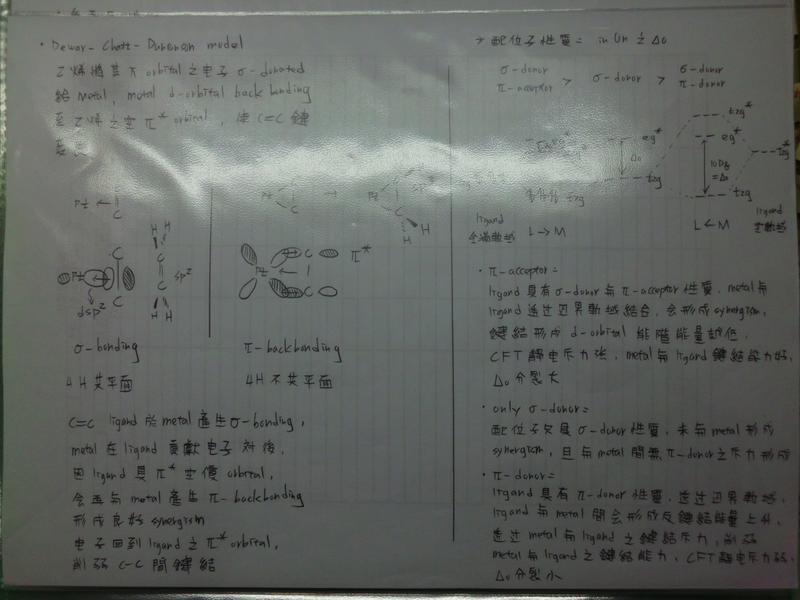 · Dewar-Chatt-Duncanson model
乙烯將其 π orbital 之电子 σ-donated
給 metal, metal d-orbital back bonding
至乙烯之空 π* orbital, 使 C=C 鍵
Pt ← C
C
Pt
C
C
dsp²
H H
C
C
sp²
H H
σ-bonding
4H 共平面
Pt
C
C
sp³
H
H
Pt
C
C
π*
π-backbonding
4H 不共平面
C=C ligand 於 metal 產生 σ-bonding,
metal 在 ligand 貢獻电子对後,
因 ligand 具 π* 空價 orbital,
会再与 metal 產生 π-backbonding
形成良好 synergism
电子回到 ligand 之 π* orbital,
削弱 C-C 間鍵結
配位子性質= in Oh 之 Δo
σ-donor
π-acceptor > σ-donor > σ-donor
π-donor
eg*
Δo
t2g
ligand
L → M
t2g*
eg*
10Dq
=Δo
t2g
t2g*
L ← M
ligand
· π-acceptor=
ligand 具有 σ-donor 与 π-acceptor 性質, metal 与
ligand 透过边界軌域結合, 会形成 synergism,
鍵結形成 d-orbital 能階能量越低,
CFT 静电斥力強, metal 与 ligand 鍵結能力好,
Δo 分裂大
· only σ-donor=
配位子只具 σ-donor 性質, 未与 metal 形成
synergism, 且与 metal 間無 π-donor 之斥力形成
· π-donor=
ligand 具有 π-donor 性質, 透过边界軌域,
ligand 与 metal 間会形成反鍵結能量上升,
透过 metal 与 ligand 之鍵結斥力, 削弱
metal 与 ligand 之鍵結能力, CFT 静电斥力弱,
Δo 分裂小